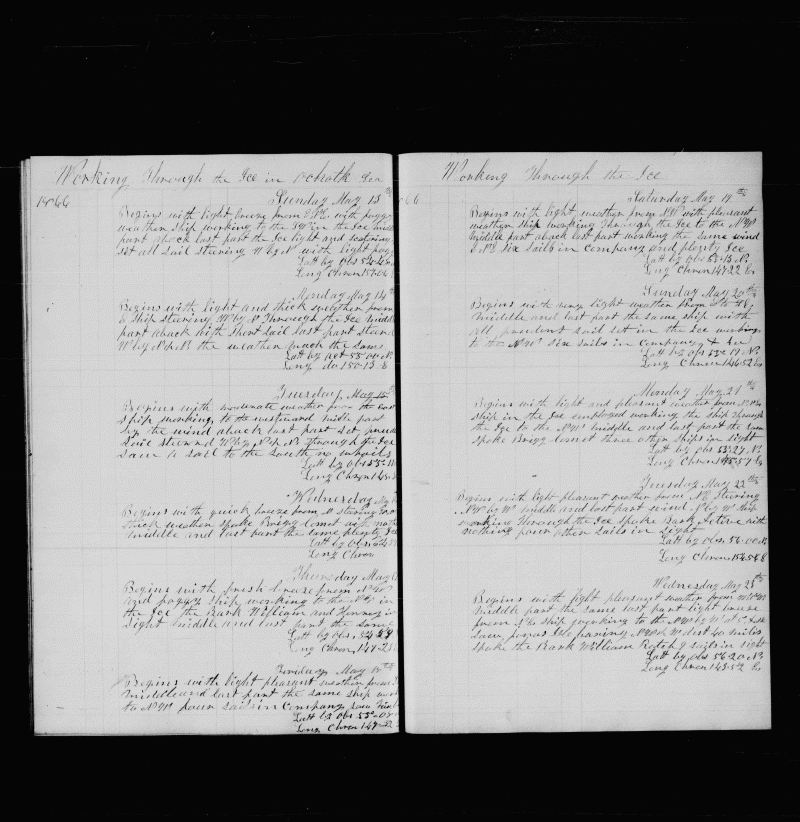 Working Through the Ice in Ochotk Sea
1866
Sunday May 13th
Begins with light breeze from with foggy
weather ship working to the NW in the Ice middle
part aback last part the Ice light and scatering
set all sail steering W by N with light fog
Latt by Obs 54-46
Long Chron 151-06
Monday May 14th
Begins with light and thick weather from
ship steering W by N Through the Ice middle
part aback with short sail last part steered
W by N & N the weather much the same
Latt by act 55-00 N
Long do 150-13 E
Tuesday May 15th
Begins with moderate weather from the
ship working to the westward middle part
by the wind aback last part set
sail steered W by N & N Through the Ice
saw a sail to the south no whails
Latt by Obs 55
Long Chron 148
Wednesday May
Begins with quick breeze from steering
thick weather spoke Brigg Comet
middle and last part the same plenty Ice
Latt by Obs 54
Long Chron
Thursday May
Begins with fresh breeze from N W
and foggy ship working to the N W in
the Ice the Bark William and Henry in
sight middle and last part the same
Latt by Obs 54
Long Chron 147-23
Friday May 18th
Begins with light pleasant weather from
middle and last part the same ship
to NW four sails in Company saw
Latt by Obs 55-02
Long Chron 147
Working Through the Ice
66
Saturday May 19th
Begins with light weather from NW with pleasant
weather ship working Through the Ice to the N W
middle part aback last part working the same wind
six sails in company and plenty Ice
Latt by Obs 55-13 N
Long Chron 147-22 E
Sunday May 20th
Begins with very light weather from
middle and last part the same ship with
all prudent sail set in the Ice working
to the NW six sails in Company
Latt by Obs 55-19 N
Long Chron 146-52 E
Monday May 21st
Begins with light and pleasant weather from N W
ship in the Ice employed working the ship through
the Ice to the NW middle and last part the same
spoke Brigg Comet three other ships in sight
Latt by Obs 55-27 N
Long Chron 145-57 E
Tuesday May 22nd
Begins with light pleasant weather from NE stering
NW by W middle and last part wind N by W ship
working Through the Ice spoke Bark Active with
nothing four other sails in sight
Latt by Obs 56-00 N
Long Chron 145-58 E
Wednesday May 23rd
Begins with light pleasant weather from
middle part the same last part light breeze
from NE ship working to the NW by W
saw Jonas Ice baring NW & W dist 40 miles
spoke the Bark William Rotch 9 sails in sight
Latt by Obs 56-20 N
Long Chron 143-52 E